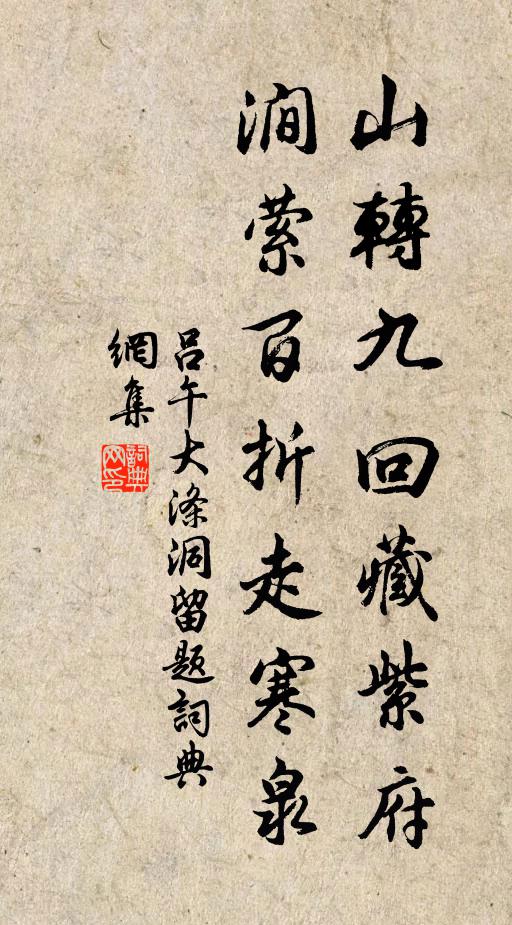 山轉九回藏紫府
澗萦百折走寒泉
吕午大滌洞留题詞典
網集
詞典
网印